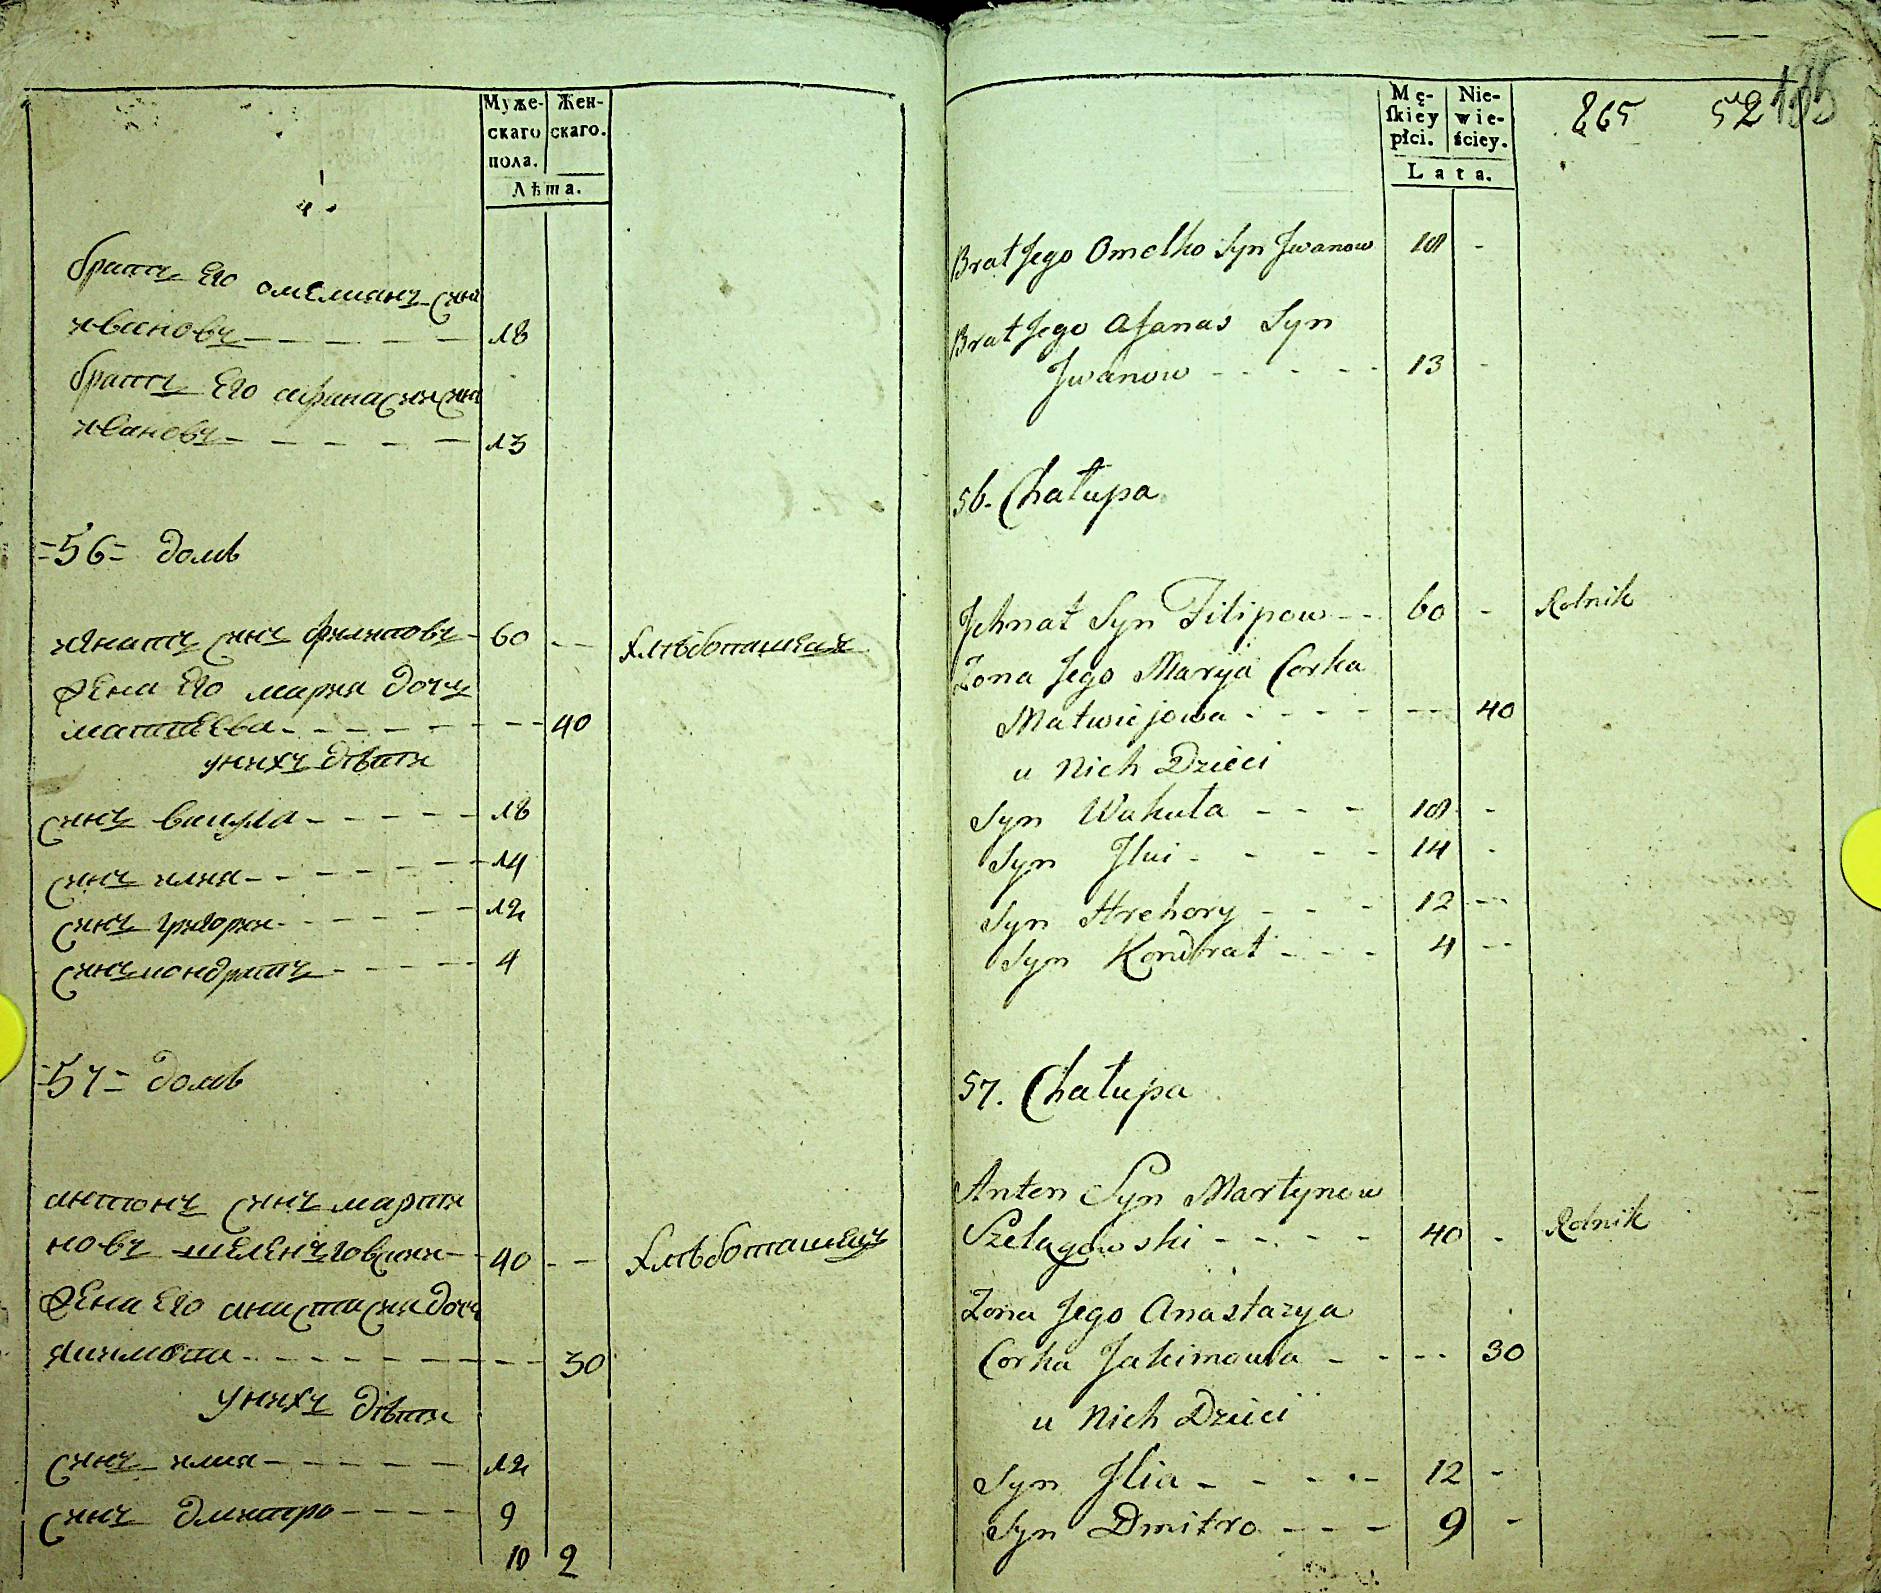 Муже-
скаго
пола.
Жен-
скаго.
Лѣта.
братъ его омелианъ синъ
ивановъ 18
братъ его афанасии синъ
ивановъ 13
=56= домъ
игнатъ синъ филиповъ 60 хлѣбопашецъ
жена его мария дочь
матвеева 40
у нихъ дѣти
синъ вакула 18
синъ илия 14
синъ григории 12
синъ кондратъ 4
=57= домъ
антонъ синъ марти
новъ шеленъговскии 40 хлѣбопашецъ
жена его анастасия дочь
якимова 30
у нихъ дѣти
синъ илия 12
синъ дмитро 9
10 2
Mę-
skiey
płci.
Nie-
wie-
ściey.
Lata.
865 52 105
Brat Jego Omelko Syn Jwanow 18 -
Brat Jego Afanas Syn
Jwanow 13 -
56. Chałupa
Jchnat Syn Filipow 60 - Rolnik
Zona Jego Maryja Corka
Matwiejowa 40
u Nich Dzieci
Syn Wakuła 18 -
Syn Jlui 14 -
Syn Hrehory 12 -
Syn Kondrat 4 -
57. Chałupa
Anton Syn Martynow
Szelągowski 40 - Rolnik
Zona Jego Anastazya
Corka Jakimowa 30
u Nich Dzieci
Syn Jlia 12 -
Syn Dmitro 9 -